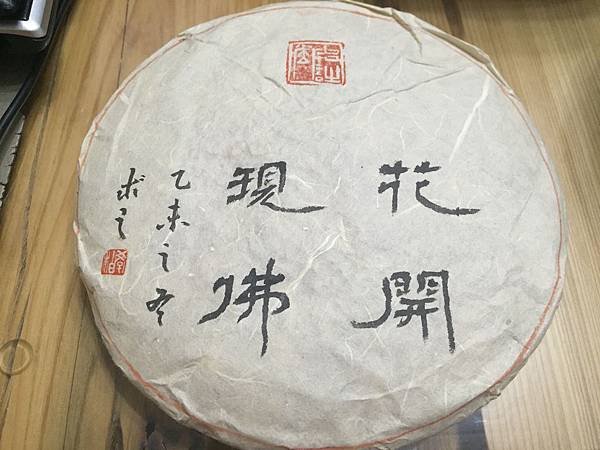 花開
現佛
乙未之冬
求之